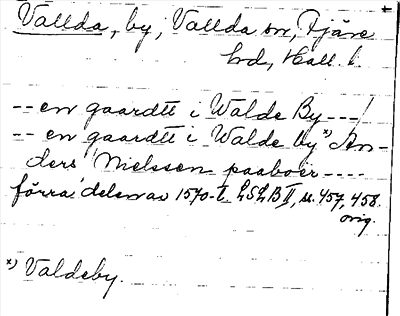 Vallda, by, Vallda sn, Fjäre
hd, Hall. l.
-- en gaardtt i Walde By ---/
-- en gaardtt i Walde by x) An-
ders Nielssen paaboer ----
förra delen av 1570-t. LSLB II, s. 457, 458.
orig.
x) Valdeby.